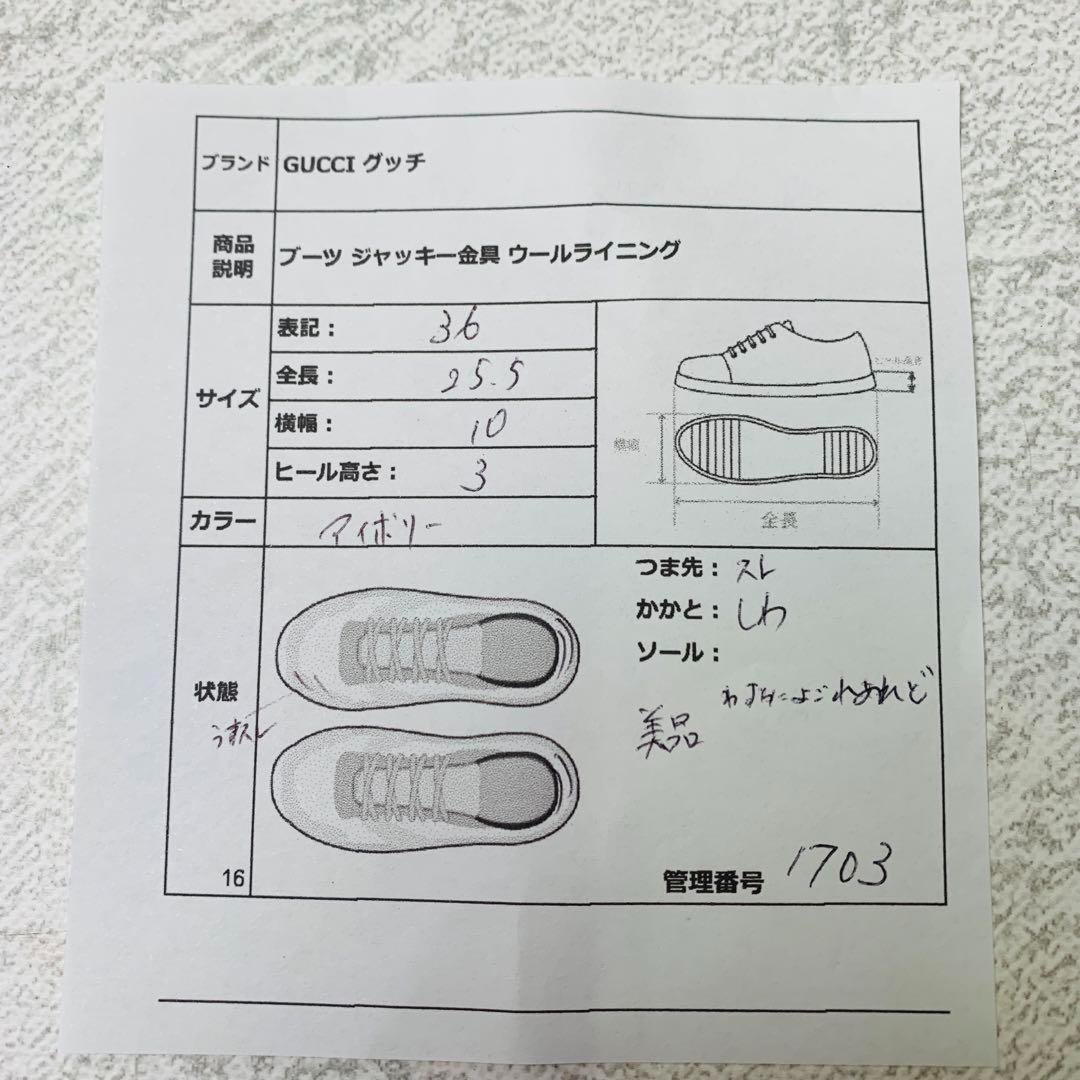 ブランド GUCCI グッチ
商品説明 ブーツ ジャッキー金具 ウールライニング
サイズ
表記： 36
全長： 25.5
横幅： 10
ヒール高さ： 3
ヒール高さ
横幅
全長
カラー アイボリー
状態
うすスレ
つま先： スレ
かかと： しわ
ソール：
わずかによごれあれど
美品
16
管理番号 1703